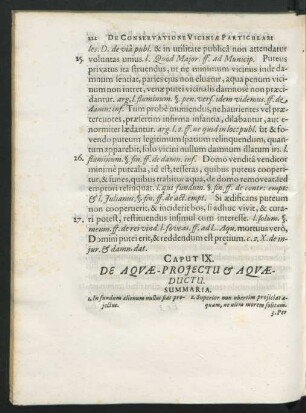 122 DE CONSERVATIONE VICINIÆ PARTICULARI
les. D. de viâ publ. & in utilitate publicâ non attendatur
25. voluntas unius. l. Quid Major. ff. ad Municip. Puteus
privatus ita struendus, ut ne minimum vicinus inde damnum
sentiat, paries ejus non eluatur, aqua penum vicini
non intret, venæ putei vicinalis damnose non præcidantur.
arg. l. fluminum. §. pen. vers. idem videmus. ff. de
damn. inf. Tum probè muniendus, ne haurientes vel prætereuntes,
præsertim infirma infanda, dilabantur, aut enormiter
lædantur. arg. l. 2. ff. ne quid in loc. publ. sit & fovendo
puteum legitimum spatium relinquendum, quantum
apparebit, solo vicini nullum damnum illatum iri. l.
26. fluminum. §. fin. ff. de damn. inf. Domo venditâ venditor
minimè putealia, id est, tesseras, quibus puteus cooperitur,
& funes, quibus hauritur aqua, de domo removeat ad
emptori relinquat. l. qui fundum. §. fin. ff. de contr. empt:
& l. Julianus. §. fin. ff. de act. empt. Si ædificans puteum
non cooperuerit, & inciderit bos, si adhuc vivit, & curari
27. potest, restituendus insimul cum interesse. l. solum. §.
meum. ff. de rei vind. l. si veas. ff. ad L. Aqu. mortuus verò,
Domini putei erit, & reddendum est pretium. c. 2. X. de injur.
& damn. dat.
CAPUT IX.
DE AQUÆ-PROJECTU & AQUÆ-
DUCTU.
SUMMARIA.
1. In fundum alienum nullus fiat projectus.
2. Superior non ubertim projiciat aquam,
ne ultra morem solitam.
3. Per